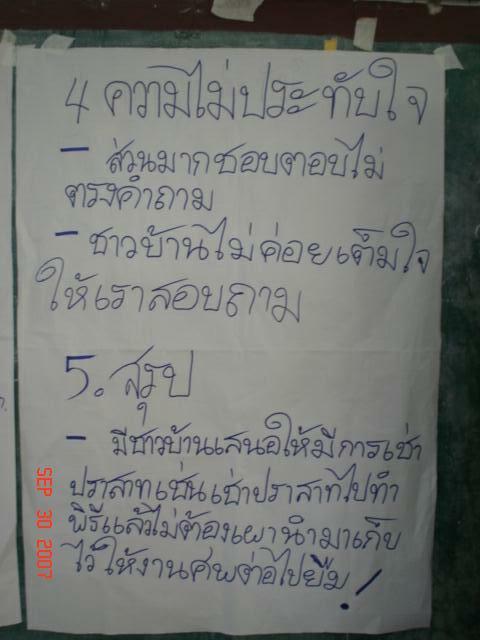 4 ความไม่ประทับใจ
- ส่วนมากชอบตอบไม่
ตรงคำถาม
- ชาวบ้านไม่ค่อยเต็มใจ
ให้เราสอบถาม
5. สรุป
- มีชาวบ้านเสนอให้มีการเช่า
ปราสาทเช่นเช่าปราสาทไปทำ
พิธีแล้วไม่ต้องเผานำมาเก็บ
ไว้ให้งานศพต่อไปยืม!
SEP 30 2007